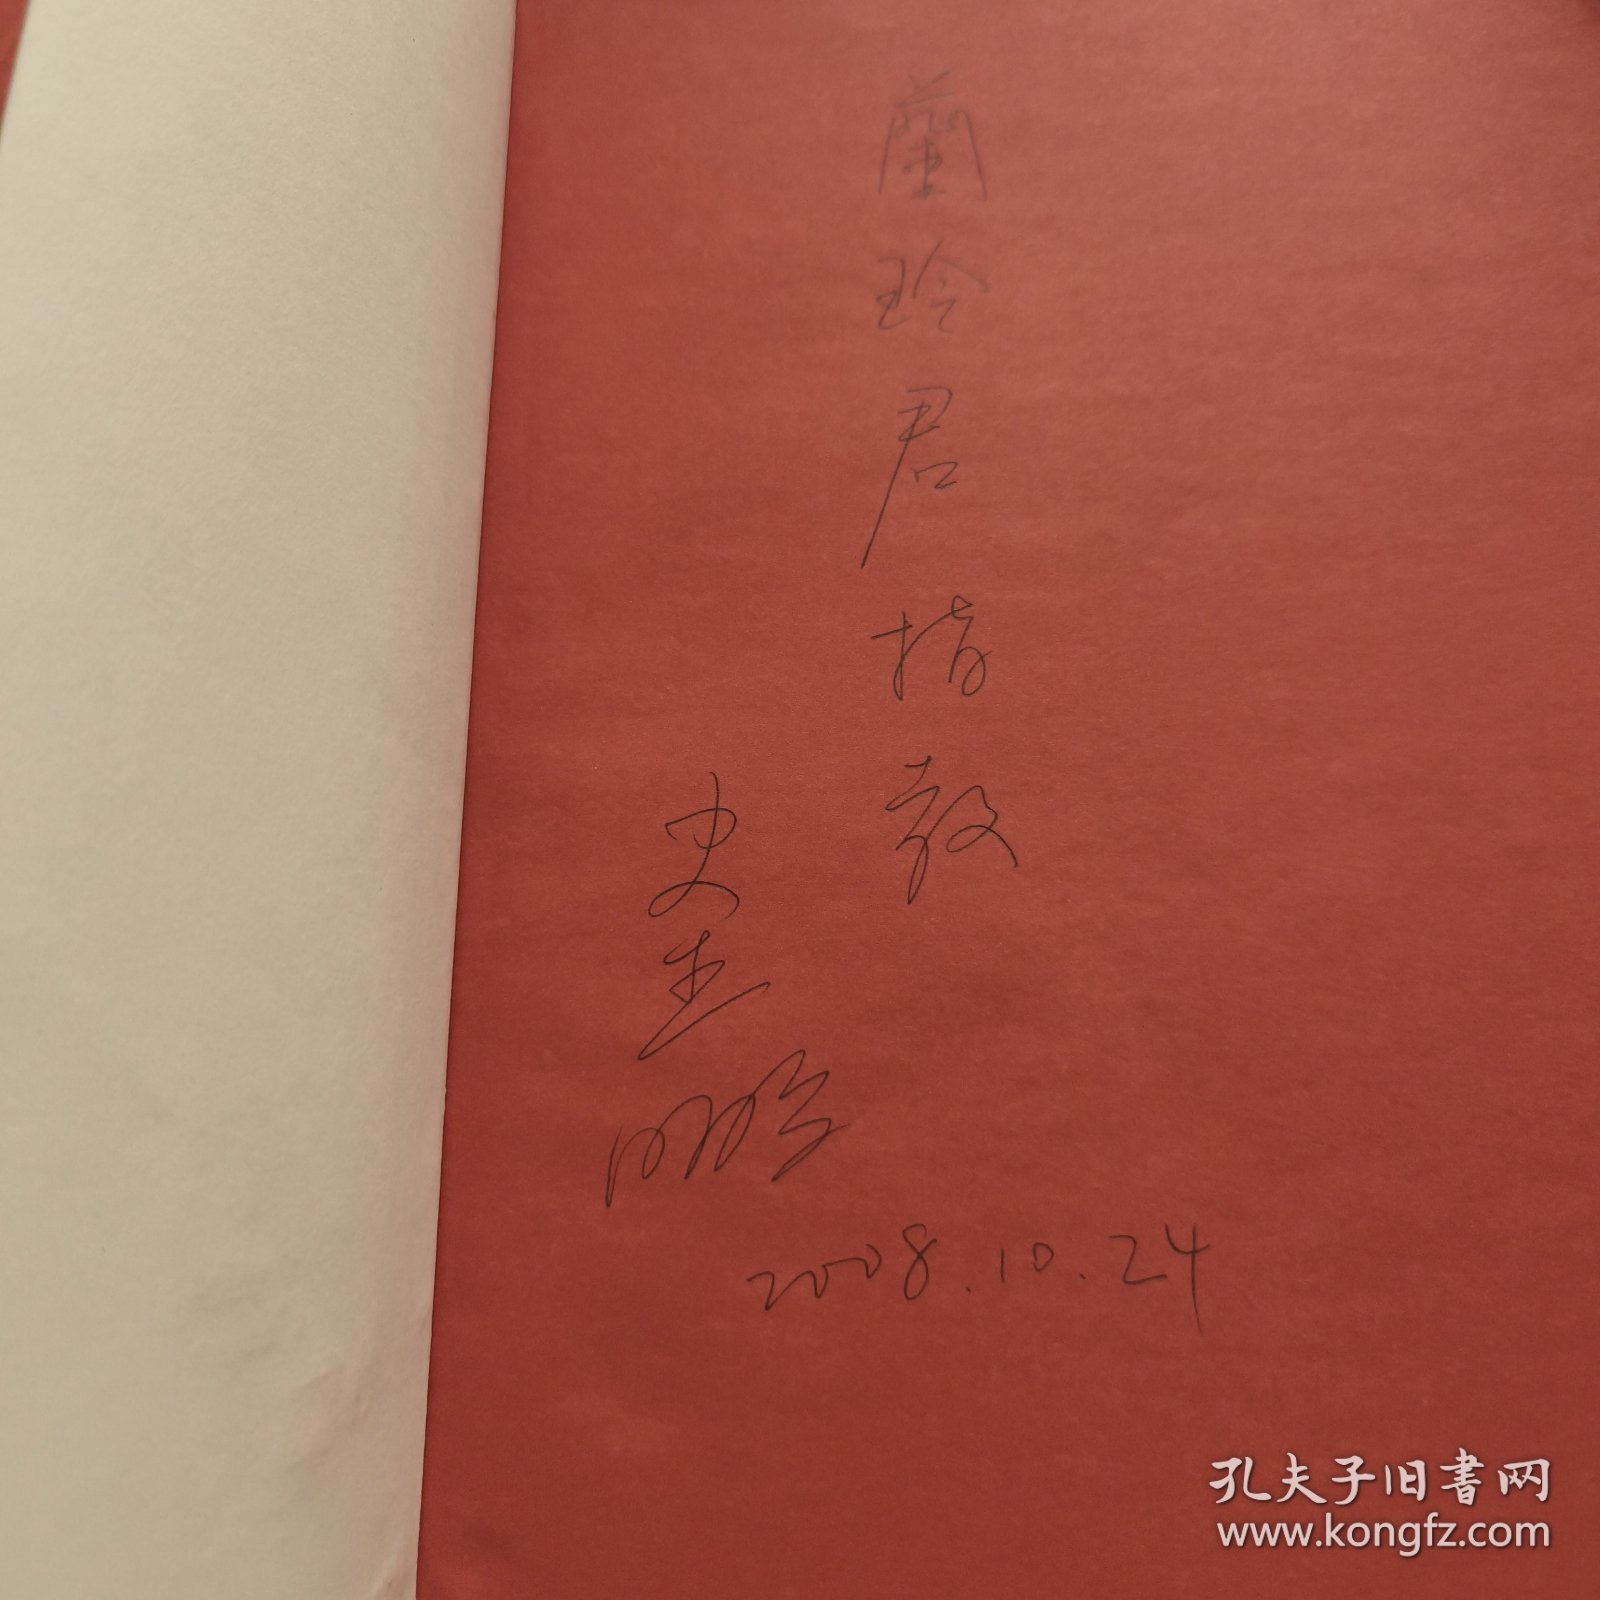 蘭玲君指教
史生
2008.10.24
孔夫子旧書网
www.kongfz.com